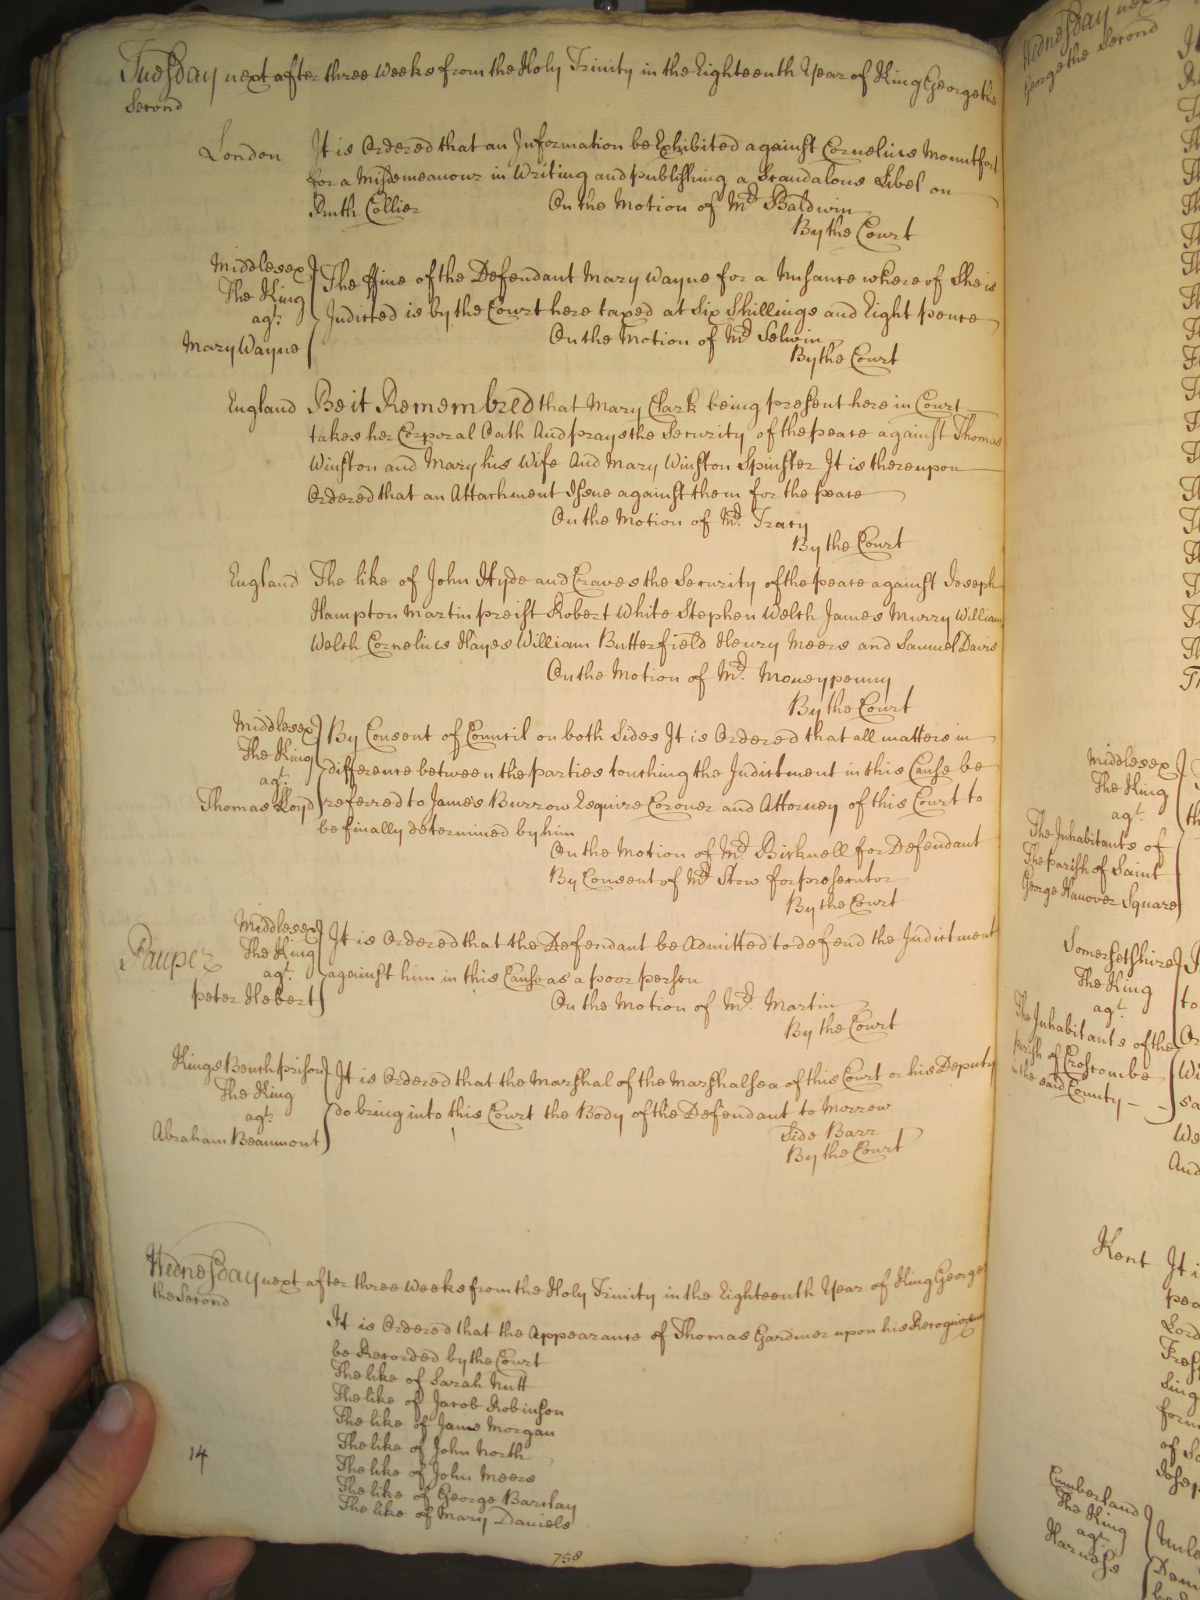 Tuesday next after three weeks from the Holy Trinity in the Eighteenth Year of King George the
Second
London It is Ordered that an Information be Exhibited against Cornelius Mountfort
for a Misdemeanour in Writing and publishing a Scandalous Libel on
Ruth Collier On the Motion of Mr. Baldwin
By the Court
Middlesex
The King
agt.
Mary Wayne
The ffine of the Defendant Mary Wayne for a Nusance where of She is
Indicted is by the Court here taxed at Six Shillings and Eight pence
On the Motion of Mr. Selwin
By the Court
England Be it Remembred that Mary Clark being present here in Court
takes her Corporal Oath And prays the Security of the peace against Thomas
Winston and Mary his Wife And Mary Winston Spinster It is thereupon
Ordered that an Attachment Issue against them for the peace
On the Motion of Mr. Tracy
By the Court
England The like of John Hyde and Craves the Security of the peace against Joseph
Hampton Martin preist Robert White Stephen Welch James Murry William
Welch Cornelius Hayes William Butterfield Henry Meers and Samuel Davis
On the Motion of Mr. Moneypenny
By the Court
Middlesex
The King
agt.
Thomas Lloyd
By Consent of Council on both Sides It is Ordered that all matters in
difference between the parties touching the Indictment in this Cause be
referred to James Burrow Esquire Coroner and Attorney of this Court to
be finally determined by him
On the Motion of Mr. Bicknell for Defendant
By Consent of Mr. Stow for prosecutor
By the Court
Pauper
Middlesex
The King
agt.
peter Hebert
It is Ordered that the Defendant be Admitted to defend the Indictment
against him in this Cause as a poor person
On the Motion of Mr. Martin
By the Court
Kings Bench prison
The King
agt.
Abraham Beaumont
It is Ordered that the Marshal of the Marshalsea of this Court or his Deputy
do bring into this Court the Body of the Defendant to Morrow
Side Barr
By the Court
Wednesday next after three weeks from the Holy Trinity in the Eighteenth Year of King George
the Second
It is Ordered that the Appearance of Thomas Gardiner upon his Recognizance
be Recorded by the Court
The like of Sarah Nutt
The like of Jacob Robinson
The like of Jame Morgan
The like of John North
The like of John Meers
The like of George Barclay
The like of Mary Daniels
14
758
Wednesday next
George the Second
Middlesex
The King
agt.
The Inhabitants of
The parish of Saint
George Hanover Square
Somersetshire
The King
agt.
The Inhabitants of the
parish of Croscombe
in the said County
Kent It i
Cumberland
The King
agt.
Harness